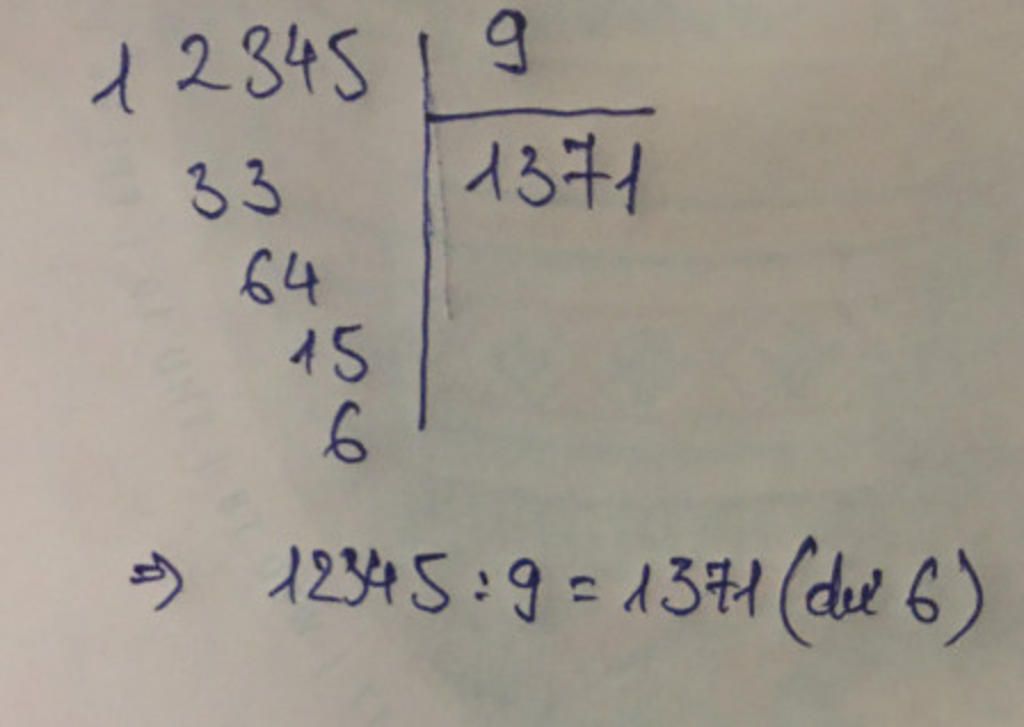 12345 9
33 1371
64
15
6
⇒ 12345 : 9 = 1371 (dư 6)